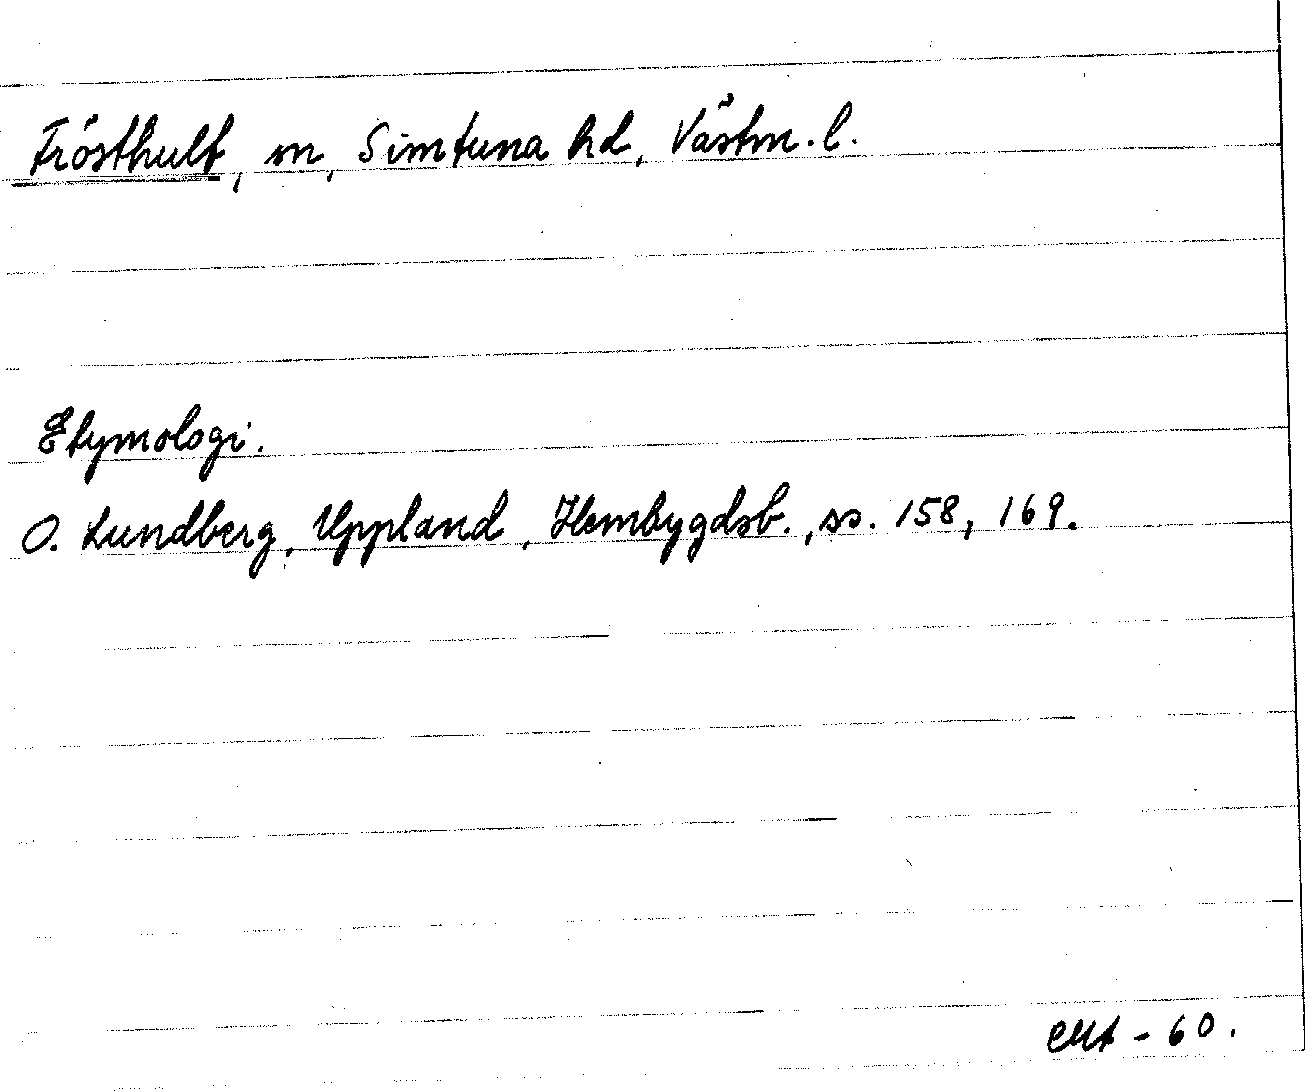 Frösthult, m, Simtuna hd, Västm. l.
Etymologi.
O. Lundberg, Uppland, Hembygdsb., ss. 158, 169.
- 60.